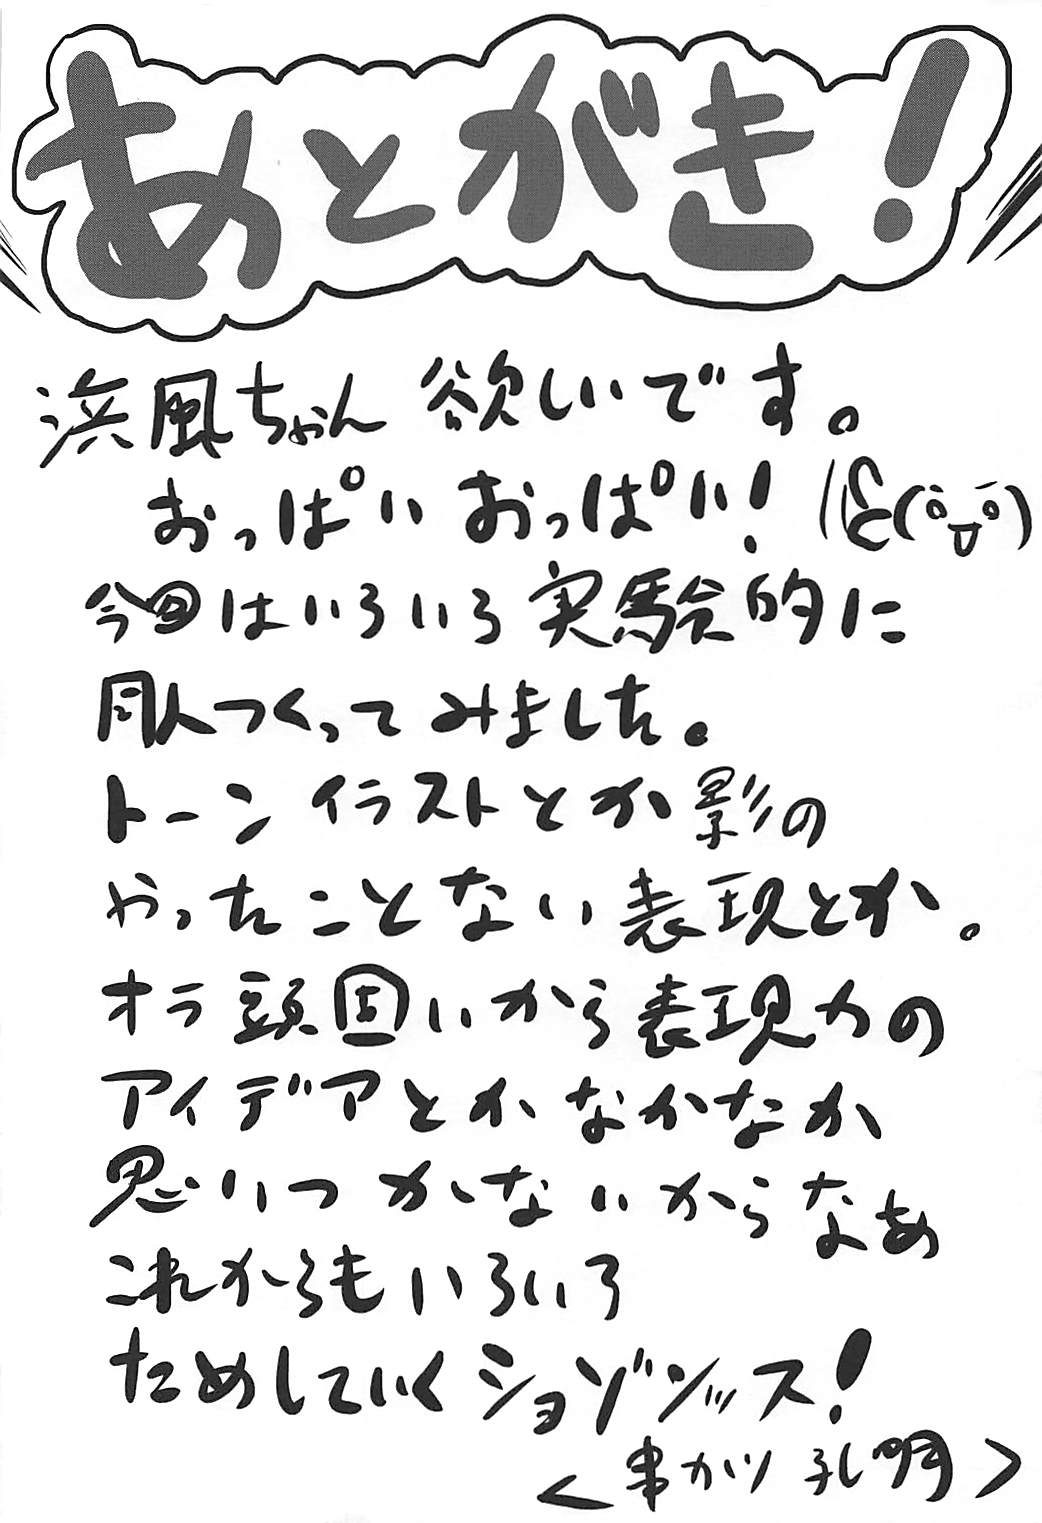 あとがき!
浜風ちゃん 欲しいです。
おっぱい おっぱい!
今回はいろいろ実験的に
同人つくってみました。
トーン イラストとか影の
やったことない表現とか。
オラ頭固いから表現力の
アイデアとかなかなか
思いつかないからなあ
これからもいろいろ
ためしていくショゾンッス!
<串カツ孔明>